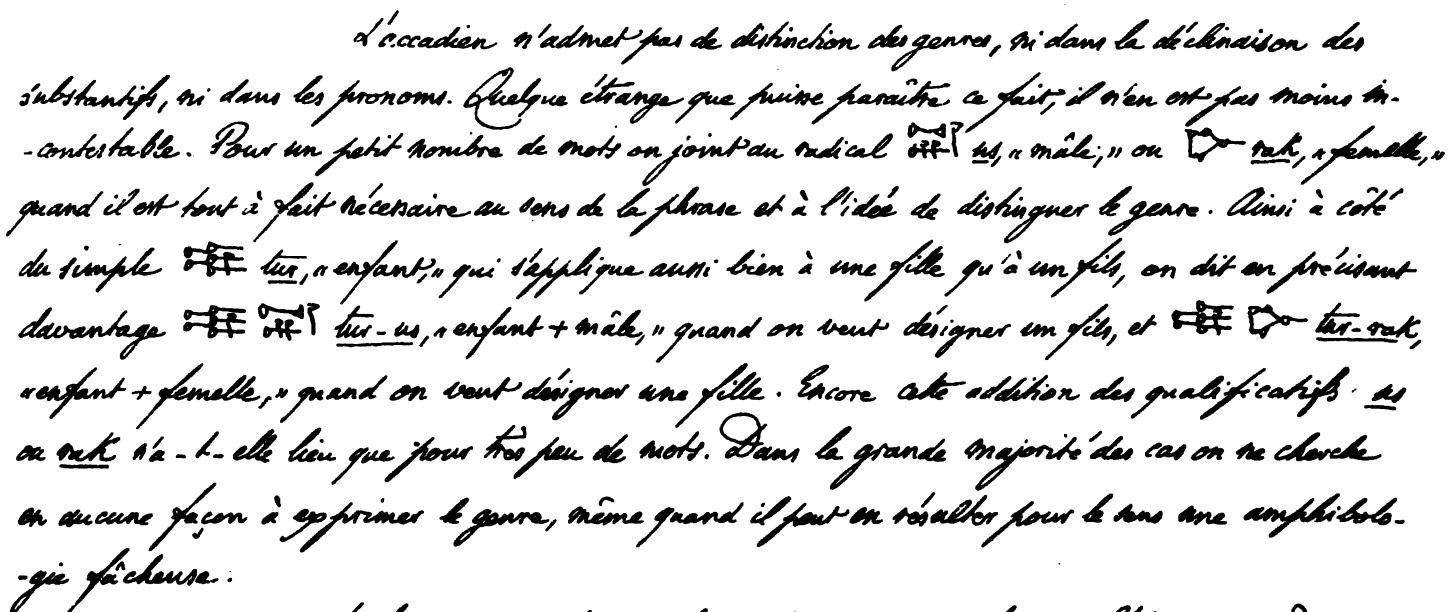 L'accadien n'admet pas de distinction des genres, ni dans la déclinaison des
substantifs, ni dans les pronoms. Quelque étrange que puisse paraître ce fait, il n'en est pas moins in-
-contestable. Pour un petit nombre de mots on joint au radical 𒍑 us, « mâle, » ou 𒊩 rak, « femelle, »
quand il est tout à fait nécessaire au sens de la phrase et à l'idée de distinguer le genre. Ainsi à côté
du simple 𒌉 tur, « enfant, » qui s'applique aussi bien à une fille qu'à un fils, on dit en précisant
davantage 𒌉 𒍑 tur-us, « enfant + mâle, » quand on veut désigner un fils, et 𒌉 𒊩 tur-rak,
« enfant + femelle, » quand on veut désigner une fille. Encore cette addition des qualificatifs us
ou rak n'a-t-elle lieu que pour très peu de mots. Dans la grande majorité des cas on ne cherche
en aucune façon à exprimer le genre, même quand il peut en résulter pour le sens une amphibolo-
-gie fâcheuse.